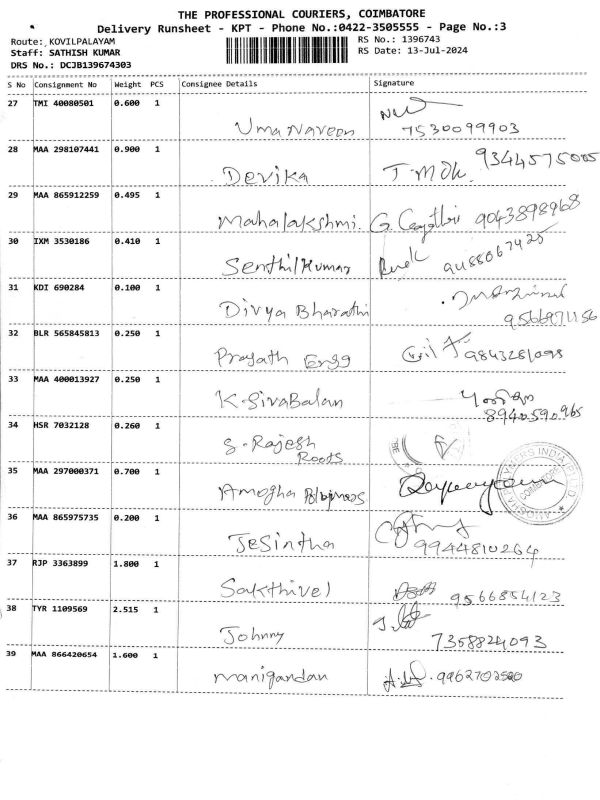 THE PROFESSIONAL COURIERS, COIMBATORE
Delivery Runsheet - KPT - Phone No.:0422-3505555 - Page No.:3
Route: KOVILPALAYAM
RS No.: 1396743
Staff: SATHISH KUMAR
RS Date: 13-Jul-2024
DRS No.: DCJB139674303
S No Consignment No Weight PCS Consignee Details Signature
27 TMI 40080501 0.600 1
Uma Naveen 7530099903
28 MAA 298107441 0.900 1
Devika 9344575005
29 MAA 865912259 0.495 1
Mahalakshmi. G. 9043898968
30 IXM 3530186 0.410 1
Senthil Kumar 9488067425
31 KDI 690284 0.100 1
Divya Bharathi
9566971156
32 BLR 565845813 0.250 1
Engg 9843281098
33 MAA 400013927 0.250 1
K. Siva Balan
8940590965
34 HSR 7032128 0.260 1
S. Rajesh
Roots
35 MAA 297000371 0.700 1
Amogha
36 MAA 865975735 0.200 1
Jesintha 9944810264
37 RJP 3363899 1.800 1
Sakthivel 9566854123
38 TYR 1109569 2.515 1
Johnny 7358824093
39 MAA 866420654 1.600 1
Manigandan